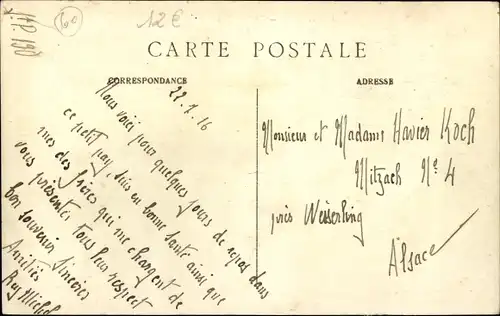 12 €
CARTE POSTALE
CORRESPONDANCE
ADRESSE
22.1.16
Nous voici pour quelques jours de repos dans
ce petit pays, suis en bonne santé ainsi que
mes des frères qui me chargent de
vous présenter tous leur respect
bon souvenir sincères
Amitiés
Rey Michel
Monsieur et Madame Havier Koch
Mitzach No 4
près Weiserling
Alsace